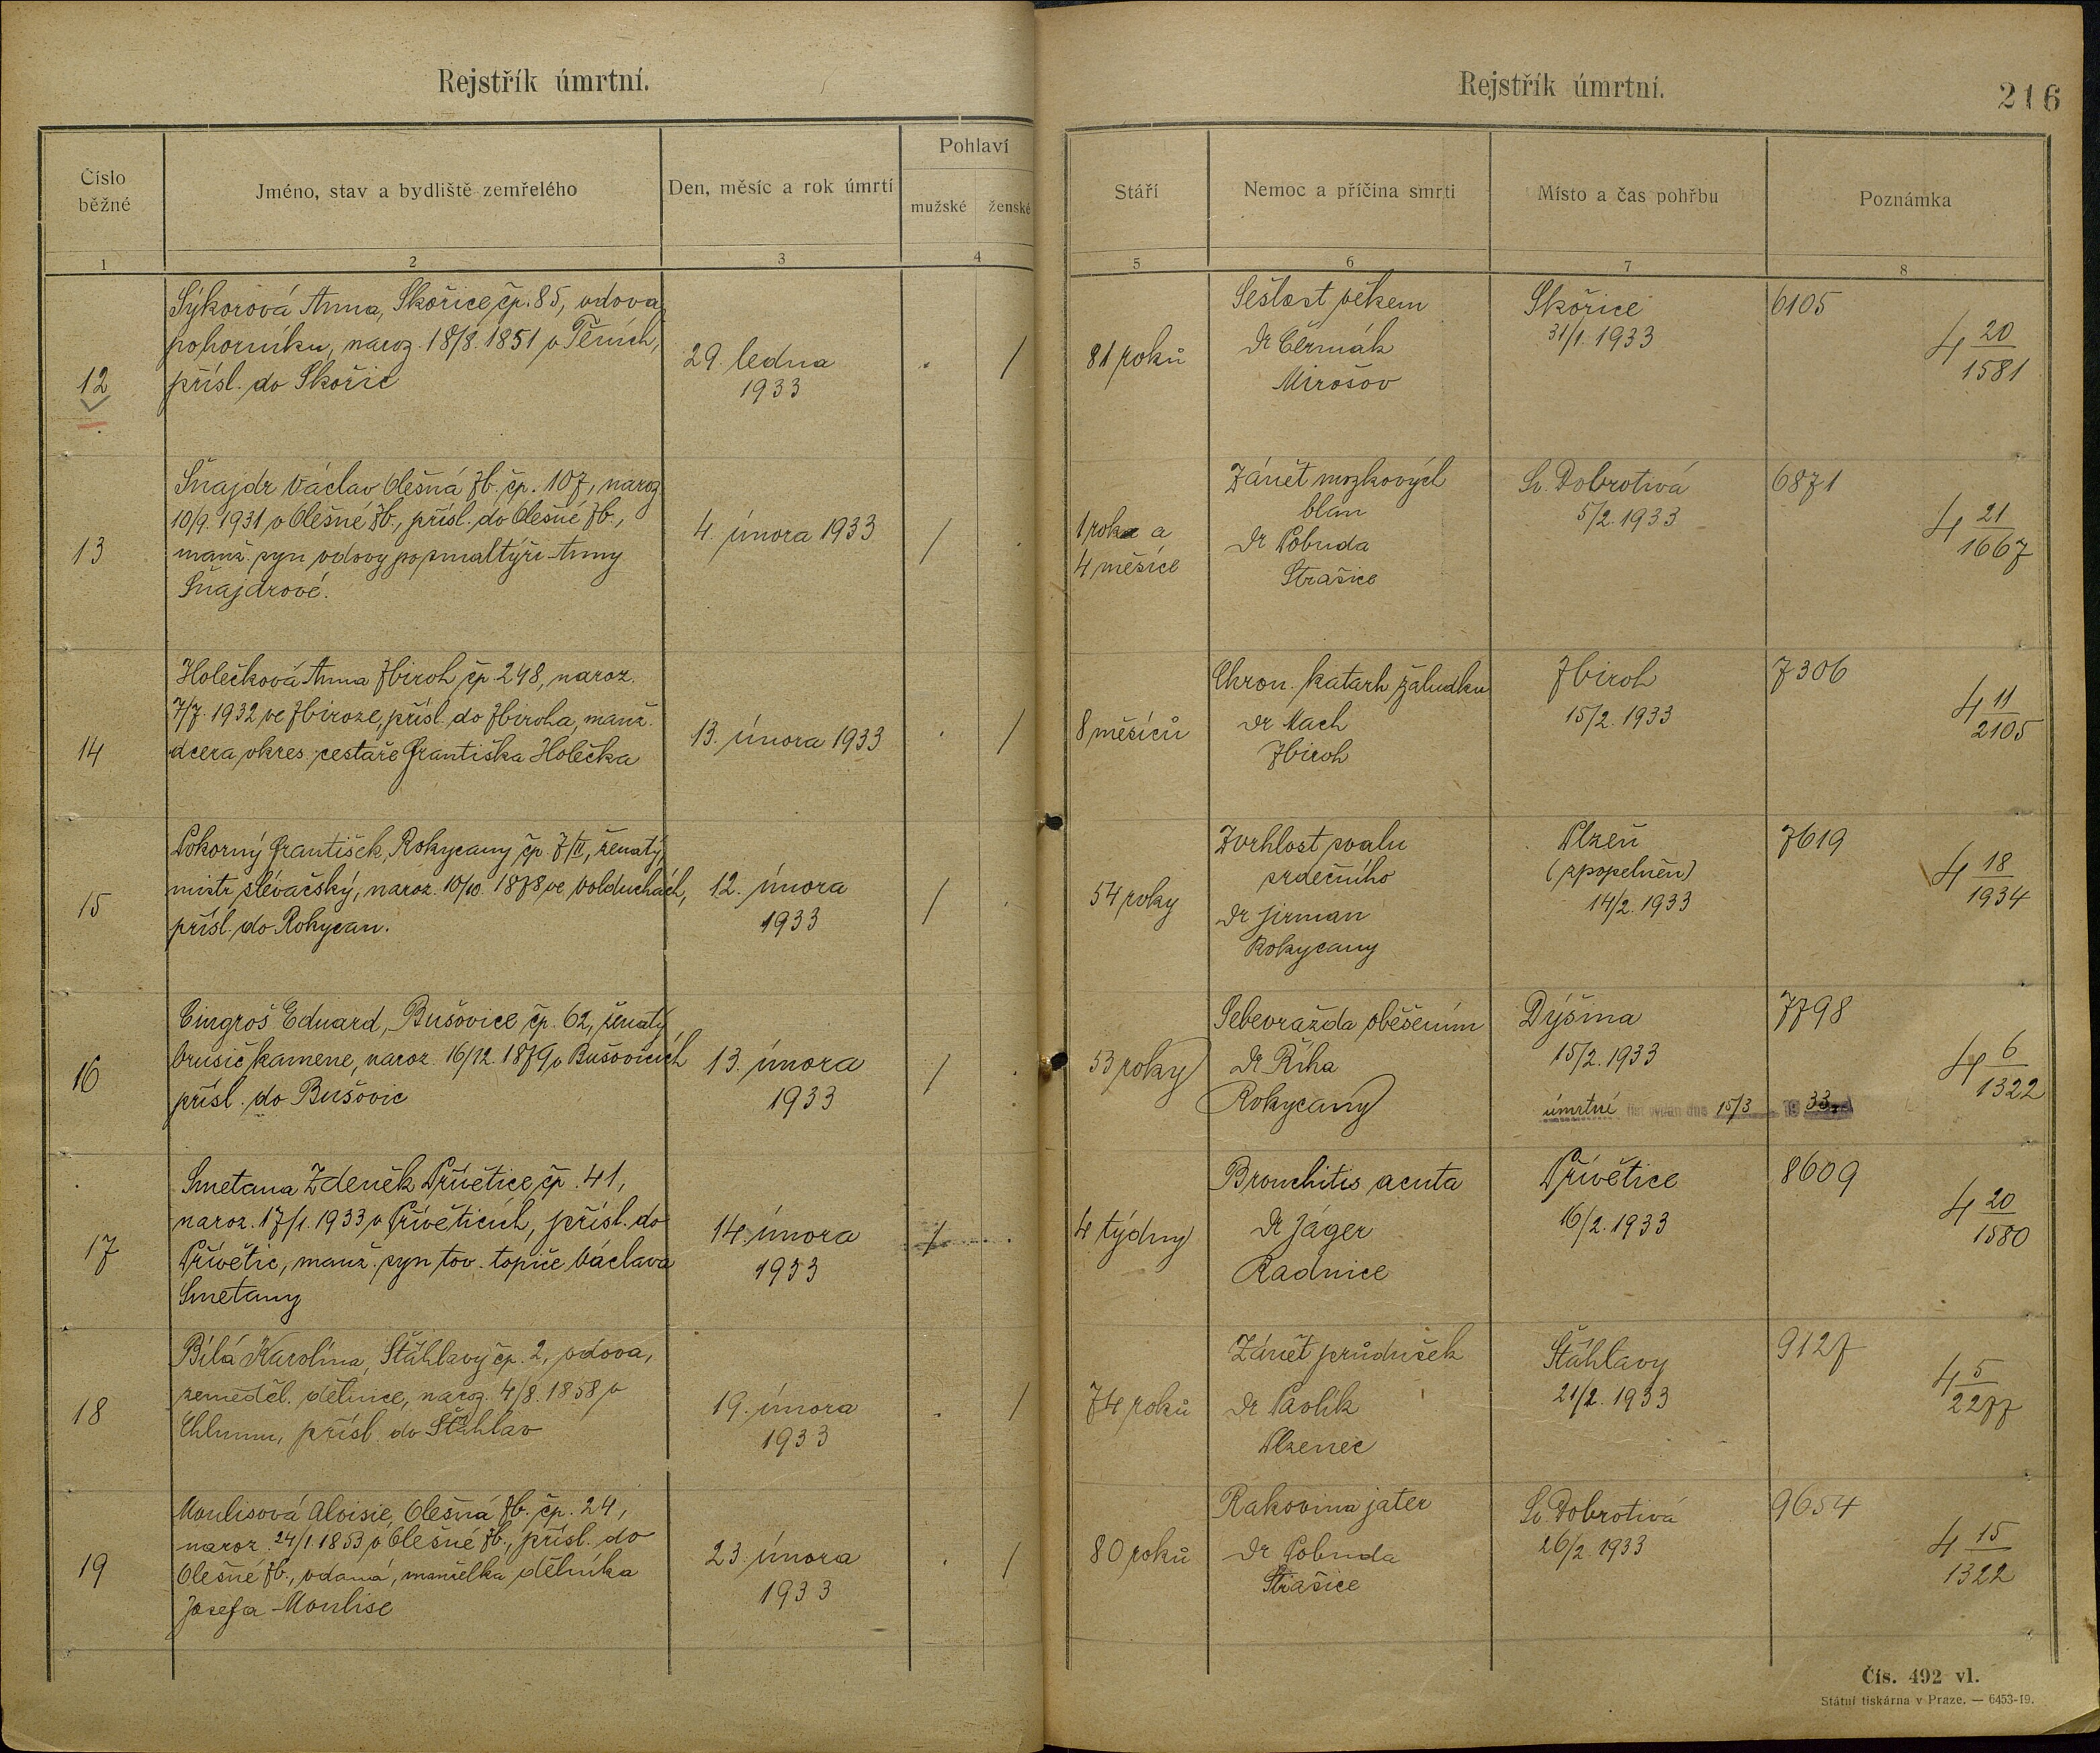 Rejstřík úmrtní.
Číslo běžné
Jméno, stav a bydliště zemřelého
Den, měsíc a rok úmrtí
Pohlaví
mužské
ženské
1
2
3
4
12
Sýkorová Anna, Skořice čp. 85, vdova
po horníku, naroz. 18/8. 1851 v Těních,
přísl. do Skořic
29. ledna
1933
. /
13
Šnajdr Václav Olešná Zb. čp. 107, naroz.
10/9. 1931 v Olešné Zb., přísl. do Olešné Zb.,
manž. syn vdovy po smaltýři Anny
Šnajdrové.
4. února 1933
/ .
14
Holečková Anna Zbiroh čp 248, naroz.
7/7. 1932 ve Zbiroze, přísl. do Zbiroha, manž.
dcera okres. cestaře Františka Holečka
13. února 1933
. /
15
Pokorný František, Rokycany čp. 7/II, ženatý,
mistr slévačský, naroz. 10/10. 1878 ve Volduchách,
přísl. do Rokycan.
12. února
1933
/ .
16
Cingroš Eduard, Bušovice čp. 62, ženatý
brusič kamene, naroz. 16/12. 1879 v Bušovicích
přísl. do Bušovic
13. února
1933
/ .
17
Smetana Zdeněk Přívětice čp. 41,
naroz. 17/1. 1933 v Přívěticích, přísl. do
Přívětic, manž. syn tov. topiče Václava
Smetany
14. února
1933
/ .
18
Bílá Karolína, Šťáhlavy čp. 2, vdova,
zeměděl. dělnice, naroz. 4/8. 1858 v
Chlumu, přísl. do Šťáhlav
19. února
1933
. /
19
Moulisová Aloisie, Olešná Zb. čp. 24,
naroz. 24/1. 1853 v Olešné Zb., přísl. do
Olešné Zb., vdaná, manželka dělníka
Josefa Moulise
23. února
1933
. /
Rejstřík úmrtní.
216
Stáří
Nemoc a příčina smrti
Místo a čas pohřbu
Poznámka
5
6
7
8
81 roků
Sešlost věkem
Dr Čermák
Mirošov
Skořice
31/1. 1933
6105
4 20/1581
1 rok a
4 měsíce
Zánět mozkových
blan
Dr Pobuda
Strašice
Sv. Dobrotivá
5/2. 1933
6871
4 21/1667
8 měsíců
Chron. katarh žaludku
Dr Mach
Zbiroh
Zbiroh
15/2. 1933
7306
4 11/2105
54 roky
Zvrhlost svalu
srdečního
Dr Jirman
Rokycany
Plzeň
(zpopelněn)
14/2. 1933
7619
4 18/1934
53 roky
Sebevražda oběšením
Dr Říha
Rokycany
Dýšina
15/2. 1933
úmrtní list vydán dne 15/3 19 33
7798
4 6/1322
4 týdny
Bronchitis acuta
Dr Jäger
Radnice
Přívětice
16/2. 1933
8609
4 20/1580
74 roků
Zánět průdušek
Dr Pavlík
Plzenec
Šťáhlavy
21/2. 1933
9127
4 5/2277
80 roků
Rakovina jater
Dr Pobuda
Strašice
Sv. Dobrotivá
26/2. 1933
9654
4 15/1322
Čís. 492 vl.
Státní tiskárna v Praze. — 6453-19.